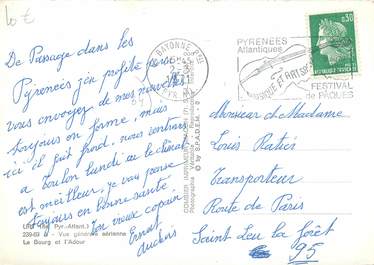 10 €
De Passage dans les
Pyrénées j'en profite pour
vous envoyer de mes nouvelles
toujours en forme, mais
ici il fait froid, nous rentrons
à Toulon lundi où le climat
est meilleur, je vous pense
toujours en bonne santé.
Ton vieux copain
Ernest
URT (64 Pyr.-Atlant.)
239-69 B - Vue générale aérienne
Le Bourg et l'Adour
© by S.P.A.D.E.M.
BAYONNE
PYRENEES
Atlantiques
MUSIQUE ET ART
FESTIVAL
de PÂQUES
0,30
Monsieur et Madame
Louis Ratiés
Transporteur
Route de Paris
Saint Leu la Forêt
95